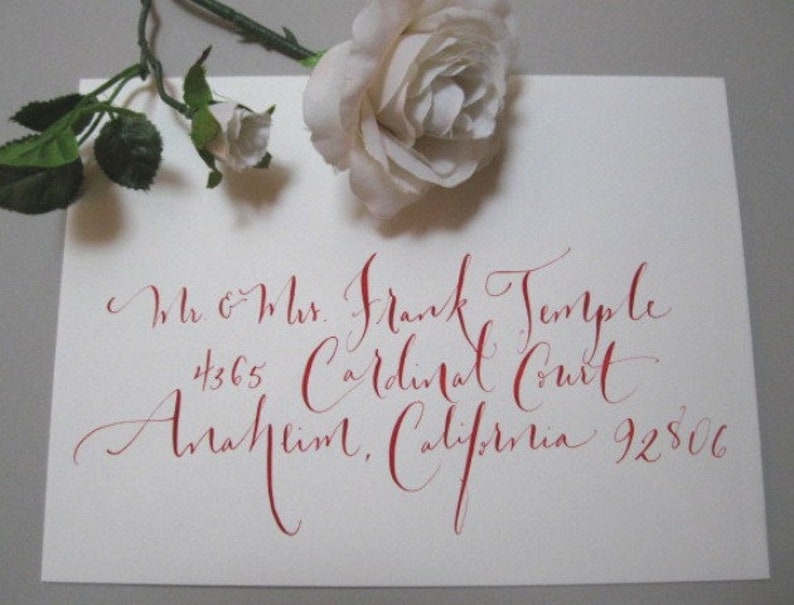 Mr. & Mrs. Frank Temple
4365 Cardinal Court
Anaheim, California 92806